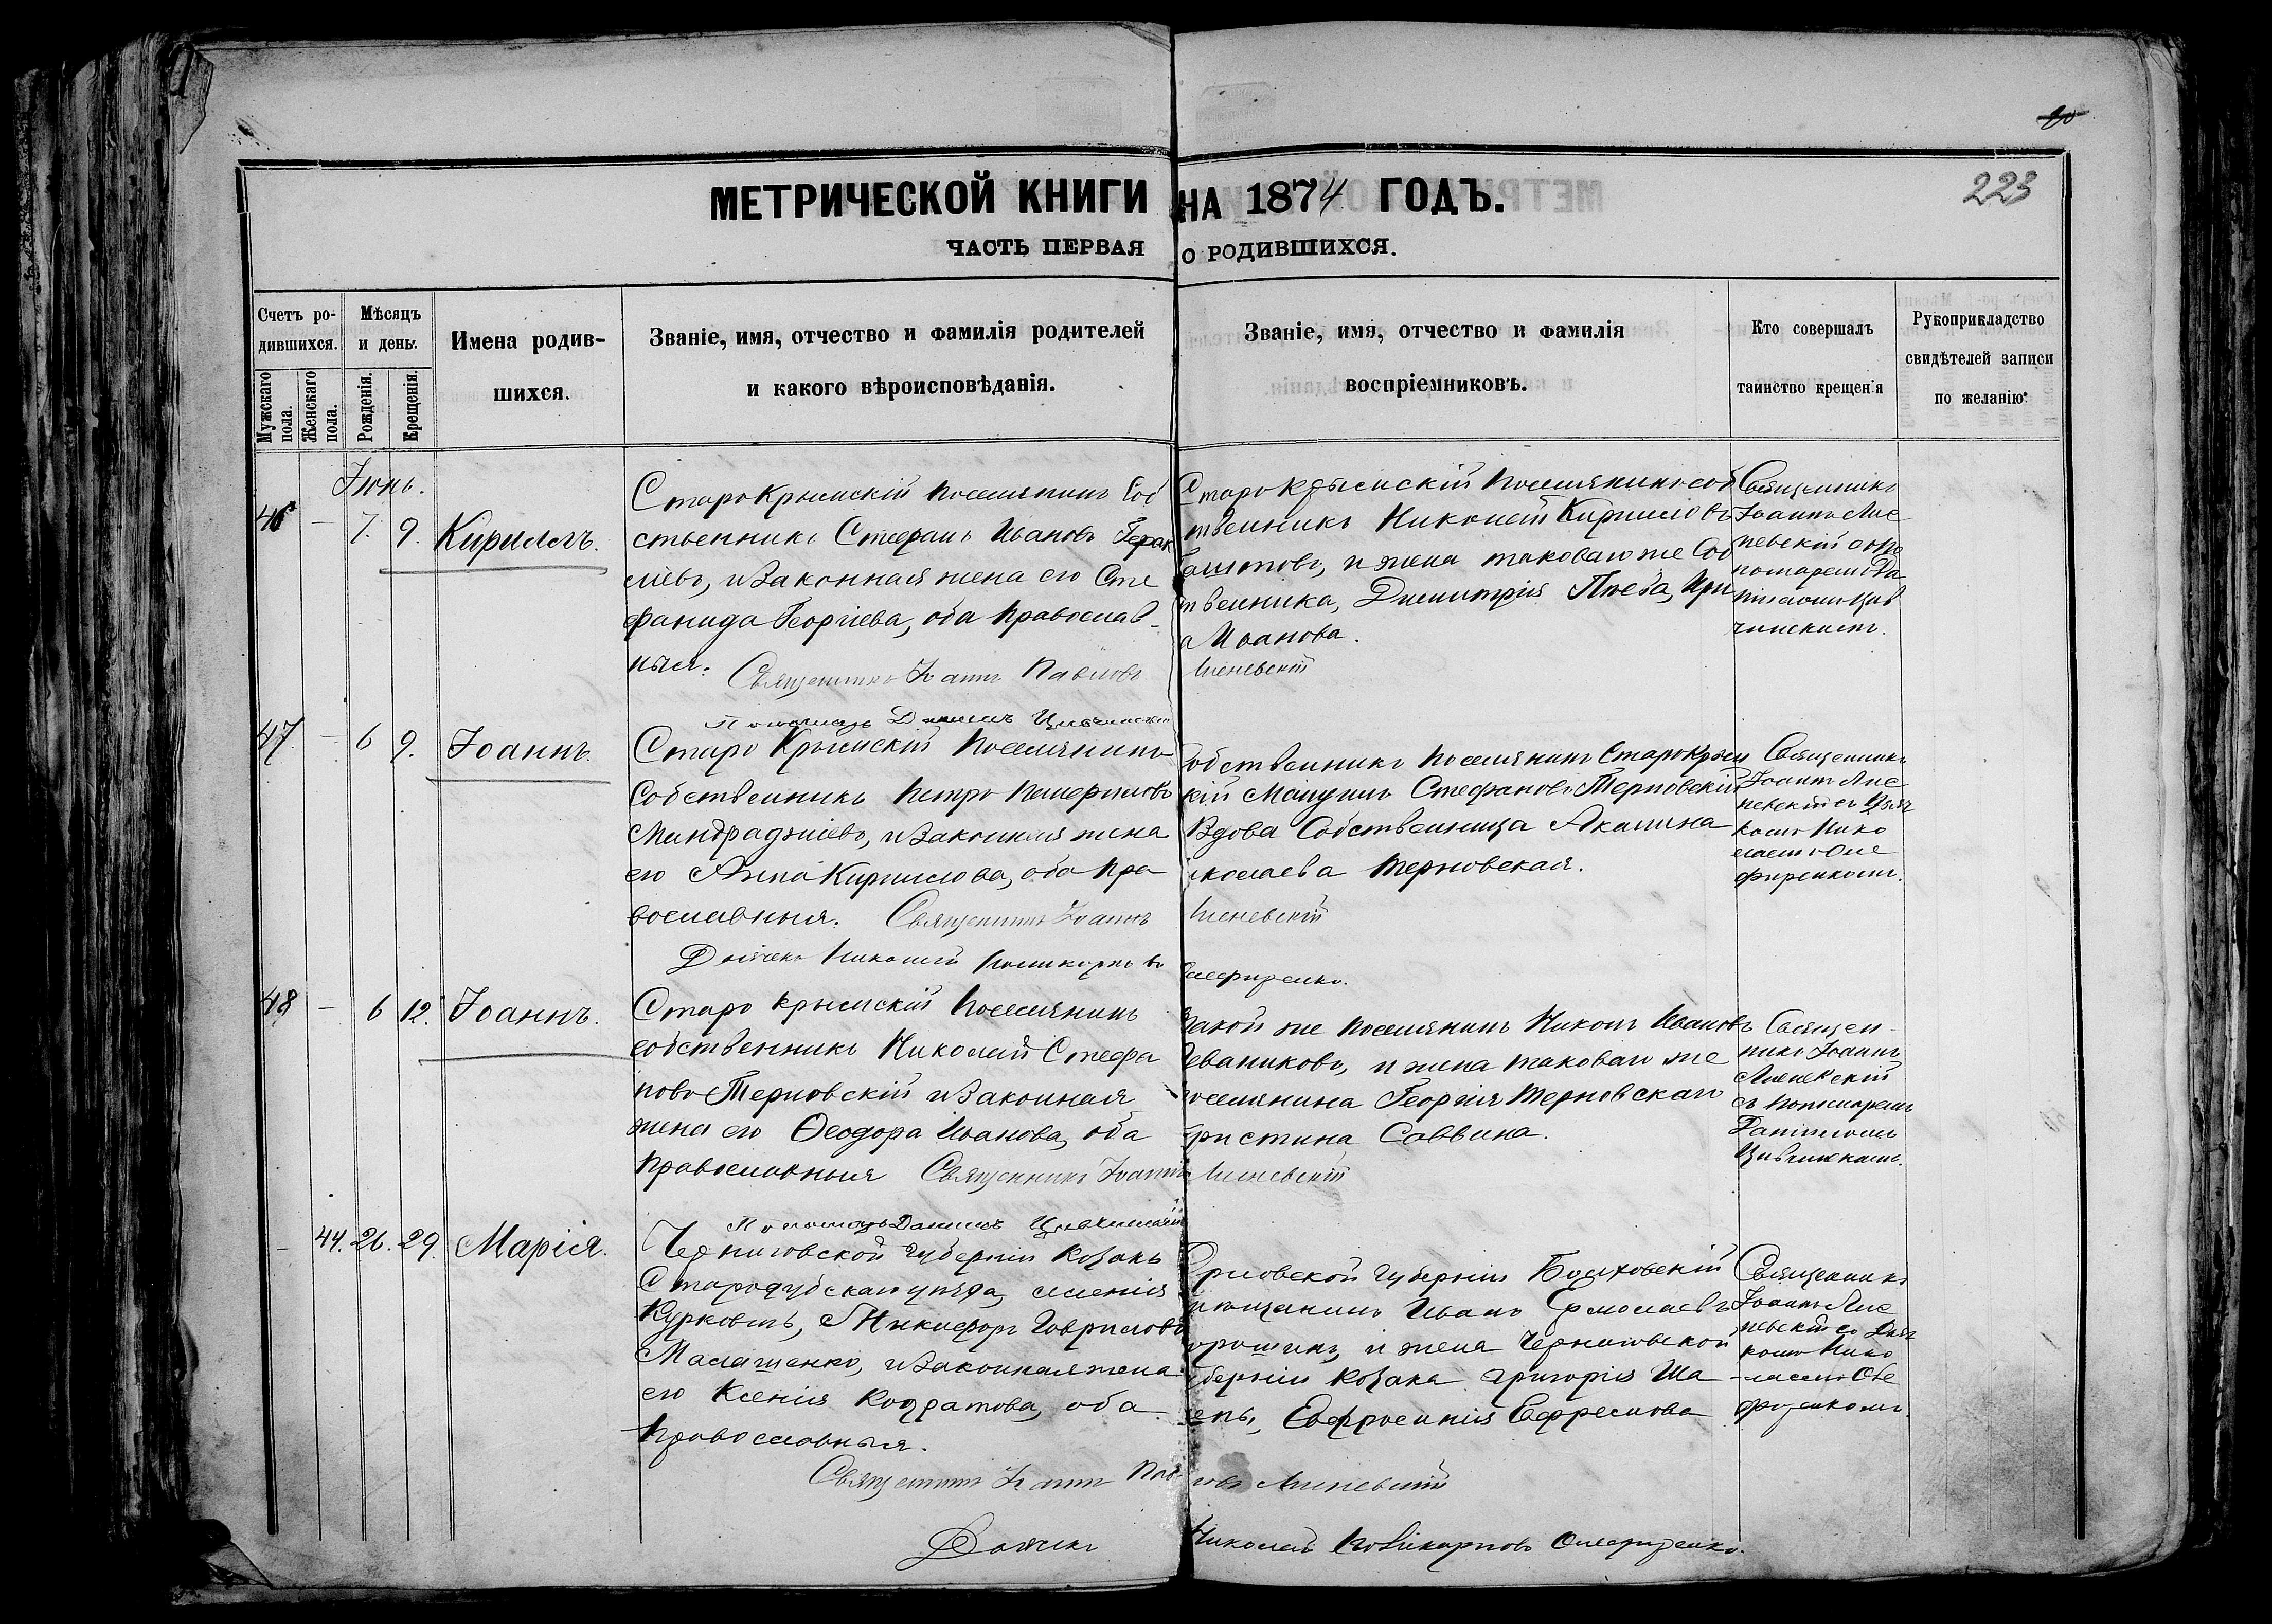 МЕТРИЧЕСКОЙ КНИГИ НА 1874 ГОДЪ.
223
ЧАСТЬ ПЕРВАЯ О РОДИВШИХСЯ.
Счетъ ро-
дившихся.
Мужскаго пола.
Женскаго пола.
Мѣсяцъ
и день.
Рожденія.
Крещенія.
Имена родив-
шихся.
Званіе, имя, отчество и фамилія родителей
и какого вѣроисповѣданія.
Званіе, имя, отчество и фамилія
воспріемниковъ.
Кто совершалъ
таинство крещенія
Рукоприкладство
свидѣтелей записи
по желанію.
Іюнь.
46 — 7. 9. Кириллъ.
Старокрымскій поселянинъ Соб
ственникъ Стефанъ Ивановъ Герак
ліевъ, и законная жена его Сте
фанида Георгіева, оба православ-
ныя.
Священникъ Іоаннъ Павловъ Лисневскій
Пономарь Даниилъ Цивчинскій
Старокрымскій поселянинъ соб
твенникъ Николай Кирилловъ
и жена таковаго же Соб
твенника, Димитрія Плева, Ири
а Иванова.
Священникъ
Іоаннъ Лис
невскій съ по
номаремъ Да
ніиломъ Цив
чинскимъ.
47 — 6 9. Іоаннъ.
Старо Крымскій поселянинъ
Собственникъ Петръ
и законная жена
его Анна Кириллова, оба пра
вославныя. Священникъ Іоаннъ Лисневскій
Дьячекъ Николай Поликарповъ Олефиренко.
обственникъ поселянинъ Старокрым
кій Стефановъ Терновскій
Вдова Собственница Акилина
иколаева Терновская.
Священникъ
Іоаннъ Лис
невскій съ Дьяч
комъ Нико
лаемъ Оле
фиренкомъ.
48 — 6 12. Іоаннъ.
Старо крымскій поселянинъ
собственникъ Николай Стефа
новъ Терновскій и законная
жена его Ѳеодора Иванова, оба
православныя Священникъ Іоаннъ Лисневскій
Пономарь Даниилъ Цивчинскій
акой же поселянинъ Никонъ Ивановъ
и жена таковаго же
оселянина Георгія Терновскаго
ристина Саввина.
Священ-
никъ Іоаннъ
Лисневскій
съ Пономаремъ
Даніиломъ
Цивчинскимъ.
— 44. 26. 29. Марія.
Черниговской губерніи козакъ
Стародубскаго уѣзда, селенія
Курковичъ, Никифоръ Гавриловъ
Малашенко, и законная жена
его Ксенія Кодратова, оба
православныя.
Священникъ Іоаннъ Павловъ Лисневскій
Дьячекъ Николай Поликарповъ Олефиренко.
рловской губерніи Болховскій
мѣщанинъ Иванъ Ермолаевъ
и жена Черниговской
уберніи козака Григорія Ша
Евфросинія Ефремова
Священникъ
Іоаннъ Лис
невскій съ Дьяч
комъ Нико
лаемъ Оле
фиренкомъ.